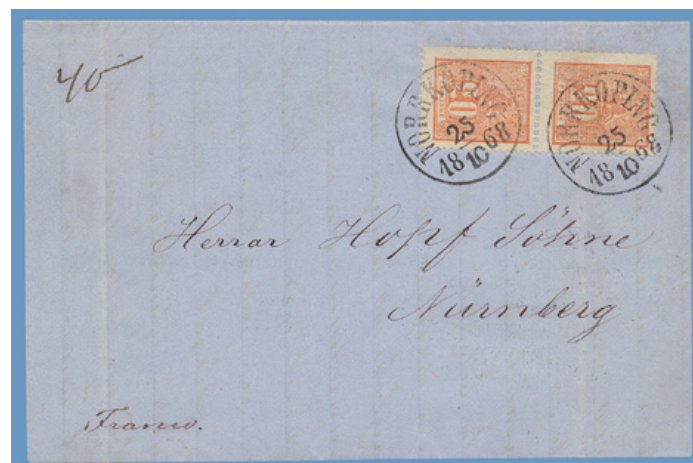 40
NORRKÖPING
25
18 10 68
NORRKÖPING
25
18 10 68
Herrar Hopf Söhne
Nürnberg
Franco.